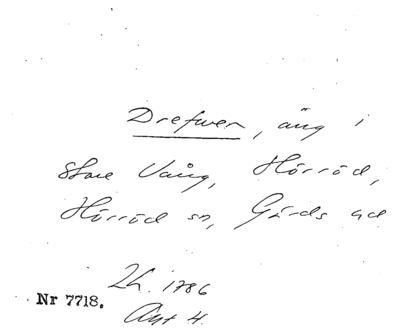 Drefwen, äng i
Store Vång, Hörröd,
Hörröd sn, Gärds hd
Lh. 1786
Akt 4.
Nr 7718.